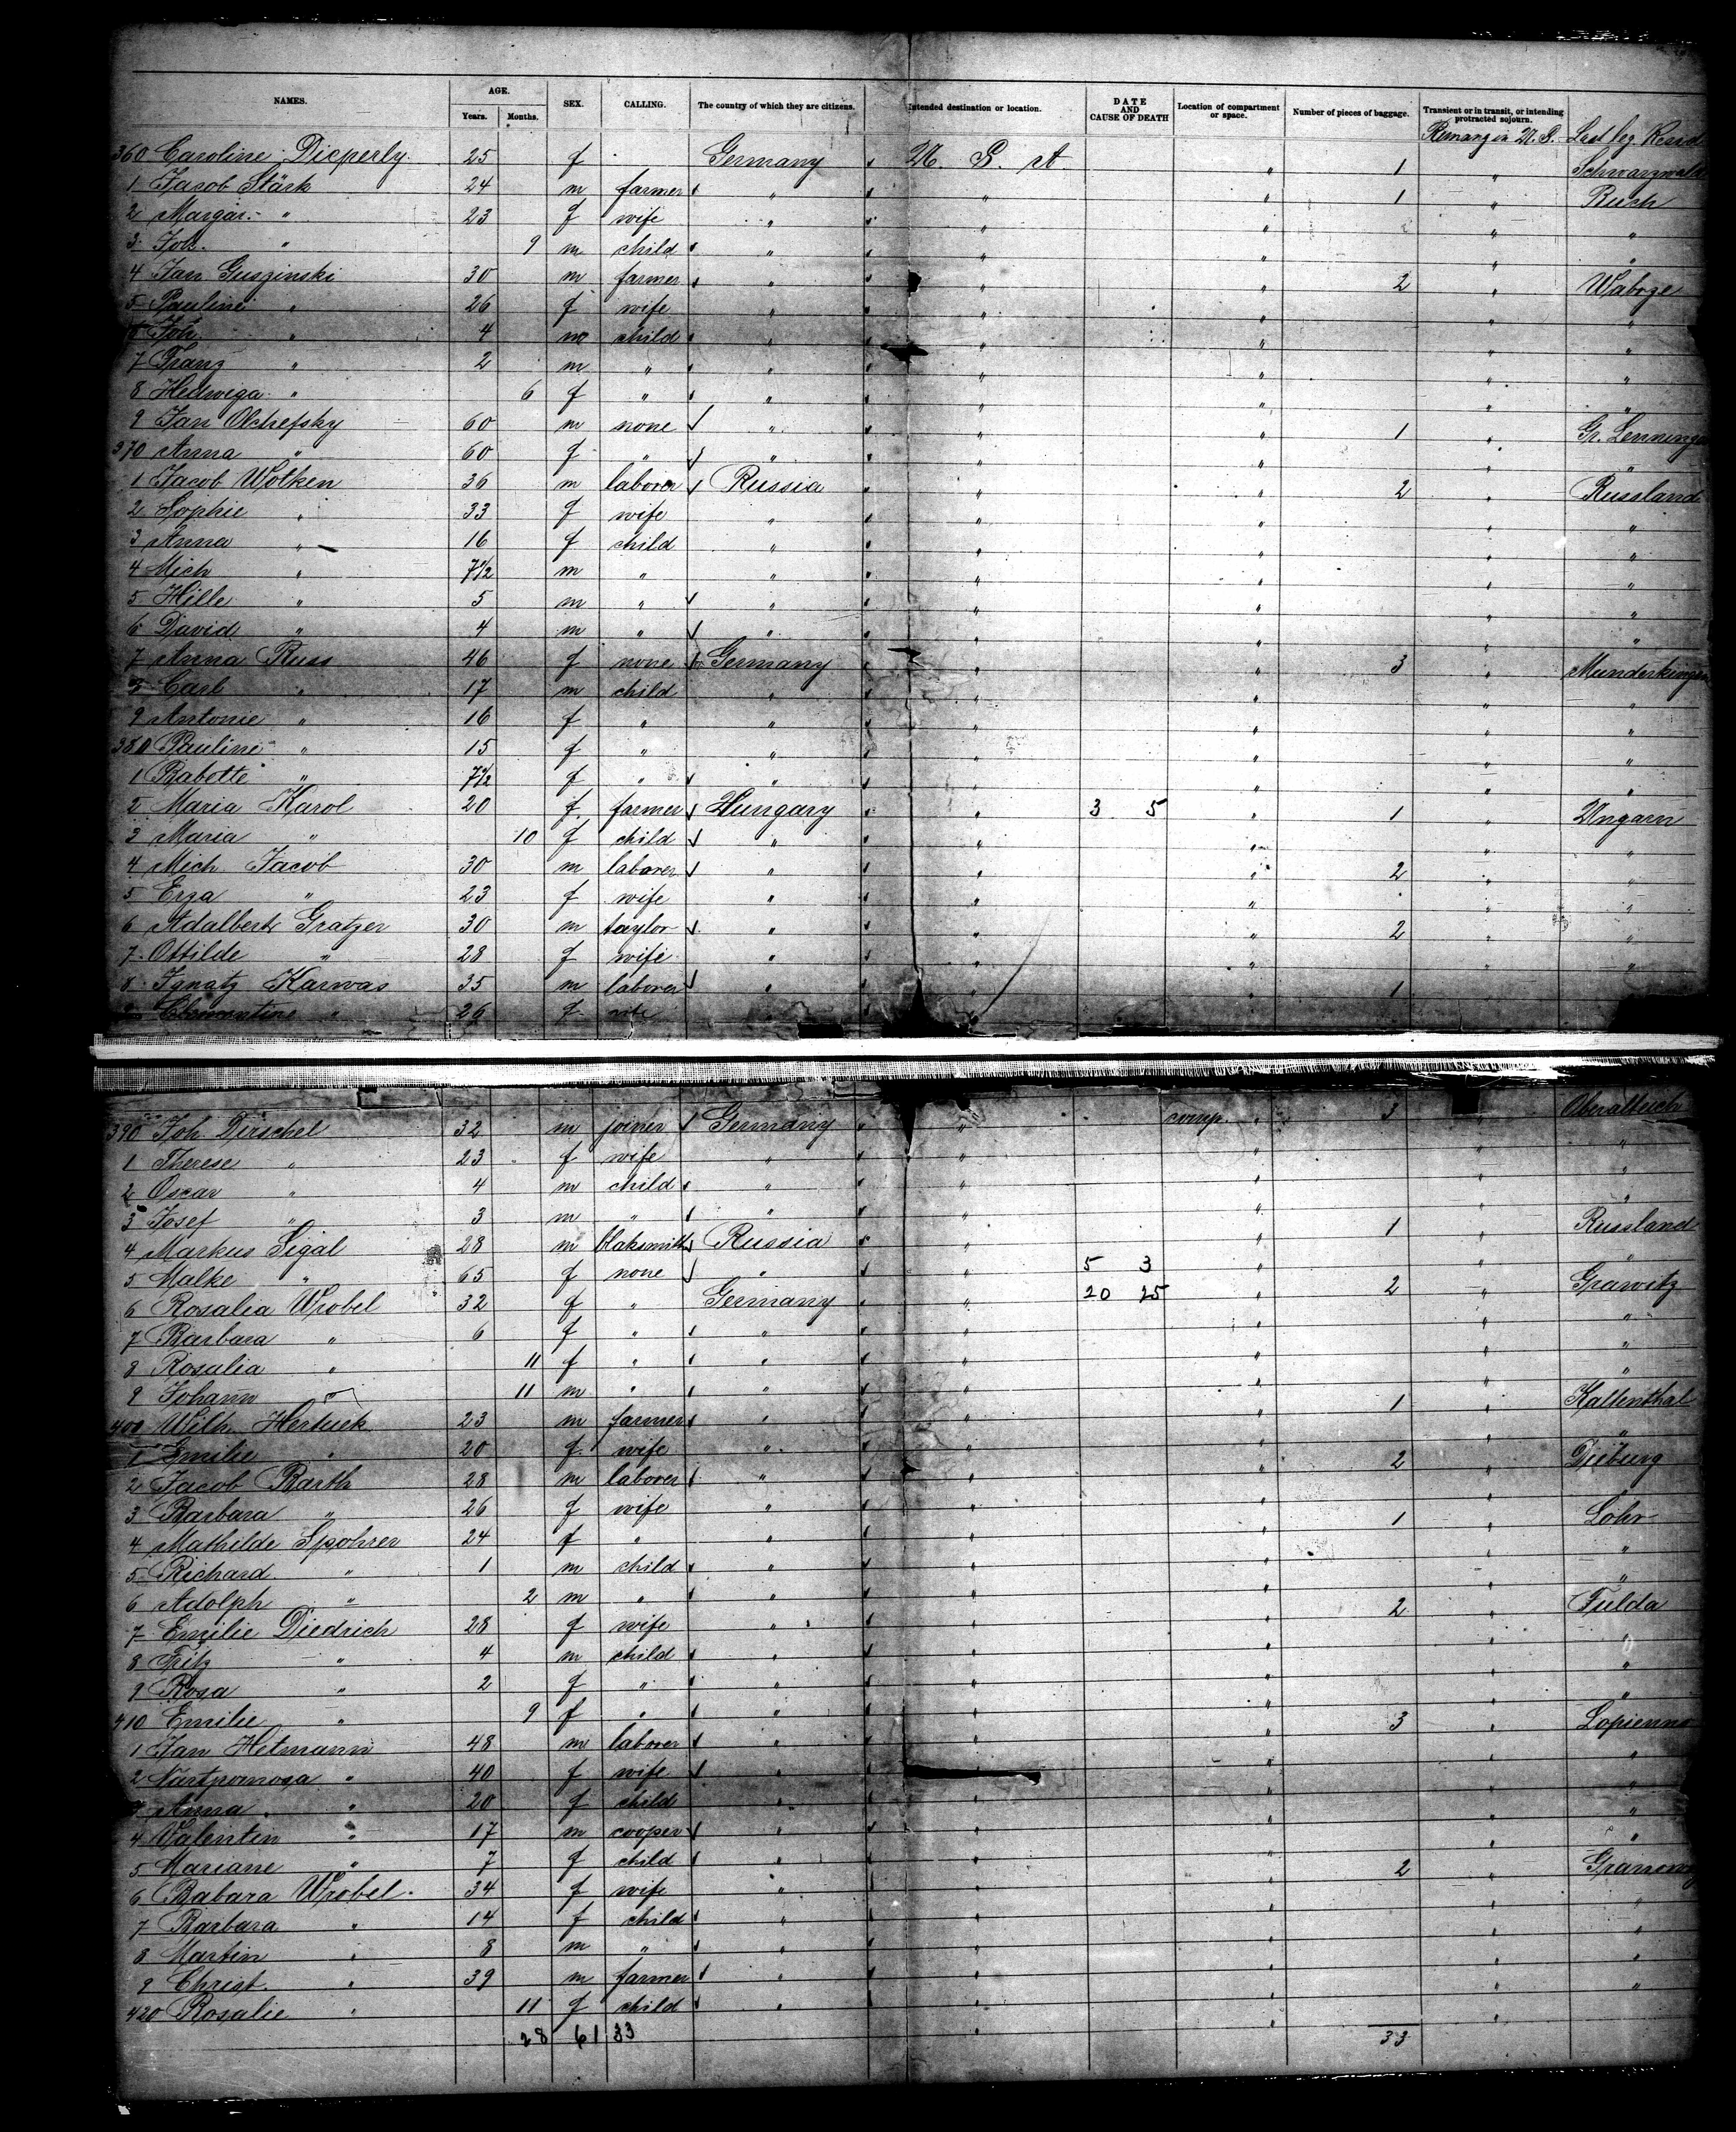 NAMES. AGE. Years. Months. SEX. CALLING. The country of which they are citizens. Intended destination or location. DATE AND CAUSE OF DEATH Location of compartment or space. Number of pieces of baggage. Transient or in transit, or intending protracted sojourn.
360 Caroline Dicperly 25 f Germany U. S. A 1 " Schwarzwald
1 Jacob Stärk 24 m farmer " " " 1 " Rush
2 Margar. " 23 f wife " " " " "
3 Joh. " 9 m child " " " " "
4 Jan Guszinski 30 m farmer " " " 2 " Wabrze
5 Pauline " 26 f wife " " " " "
6 Joh. " 4 m child " " " " "
7 Franz " 2 m " " " " " "
8 Hedwega " 6 f " " " " " "
9 Jan Olchefsky 60 m none " " " 1 " Gr. Lenninge
370 Anna " 60 f " " " " " "
1 Jacob Wolken 36 m laborer Russia " " 2 " Russland
2 Sophie " 33 f wife " " " " "
3 Anna " 16 f child " " " " "
4 Mich " 7 1/2 m " " " " " "
5 Hille " 5 m " " " " " "
6 David " 4 m " " " " " "
7 Anna Russ 46 f none Germany " 3 " Munderkingen
8 Carl " 17 m child " " " " "
9 Antonie " 16 f " " " " " "
380 Pauline " 15 f " " " " " "
1 Babette " 7 1/2 f " " " " " "
2 Maria Karol 20 f farmer Hungary " 3 5 " 1 " Ungarn
3 Maria " 10 f child " " " " "
4 Mich. Jacob 30 m laborer " " " 2 " "
5 Erza " 23 f wife " " " " "
6 Adalbert Gratzer 30 m taylor " " " 2 " "
7 Ottilde " 28 f wife " " " " "
8 Ignatz Karwas 35 m laborer " " " 1
9 Clementine " 26 f wife
390 Joh. Dirschel 32 m joiner Germany " " 3 " Oberalteich
1 Therese " 23 f wife " " " " "
2 Oscar " 4 m child " " " " "
3 Josef " 3 m " " " " " "
4 Markus Sigal 28 m blaksmith Russia " " 1 " Russland
5 Malke " 65 f none " " 5 3 " " "
6 Rosalia Wrobel 32 f " Germany " 20 25 " 2 " Grawitz
7 Barbara " 6 f " " " " " "
8 Rosalia " 11 f " " " " " "
9 Johann " 11 m " " " " " "
400 Wilh. Hertuck 23 m farmer " " " 1 " Kaltenthal
1 Emilie " 20 f wife " " " " "
2 Jacob Barth 28 m laborer " " " 2 " Dieburg
3 Barbara " 26 f wife " " " " "
4 Mathilde Spohrer 24 f " " " " 1 " Lohr
5 Richard " 1 m child " " " " "
6 Adolph " 2 m " " " " " "
7 Emilie Diedrich 28 f wife " " " 2 " Fulda
8 Fritz " 4 m child " " " " "
9 Rosa " 2 f " " " " " "
410 Emilie " 9 f " " " " " "
1 Jan Hetmann 48 m laborer " " " 3 " Lopienno
2 " 40 f wife " " " " "
3 Anna " 20 f child " " " " "
4 Valentin " 17 m cooper " " " " "
5 Mariane " 7 f child " " " " "
6 Babara Wrobel 34 f wife " " " 2 "
7 Barbara " 14 f child " " " " "
8 Martin " 8 m " " " " " "
9 Christ. " 39 m farmer " " " " "
420 Rosalie " 11 f child " " " "
28 61 33 33